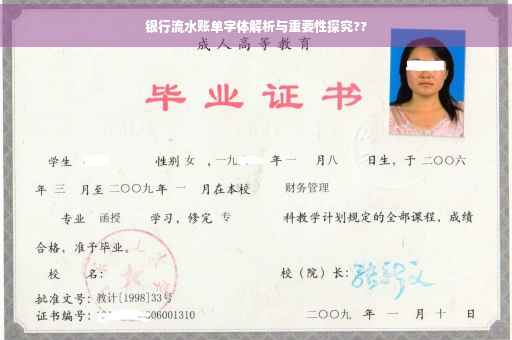 银行流水账单字体解析与重要性探究??
成人高等教育
毕业证书
学生 性别 女 ,一九 年 一 月八 日生,于 二〇〇六
年 三 月至 二〇〇九 年 一 月在本校 财务管理
专业 函授 学习,修完 专 科教学计划规定的全部课程,成绩
合格,准予毕业。
校 名: 校(院)长:
批准文号:教计[1998]33号
证书编号: 06001310 二〇〇九 年 一 月 十 日